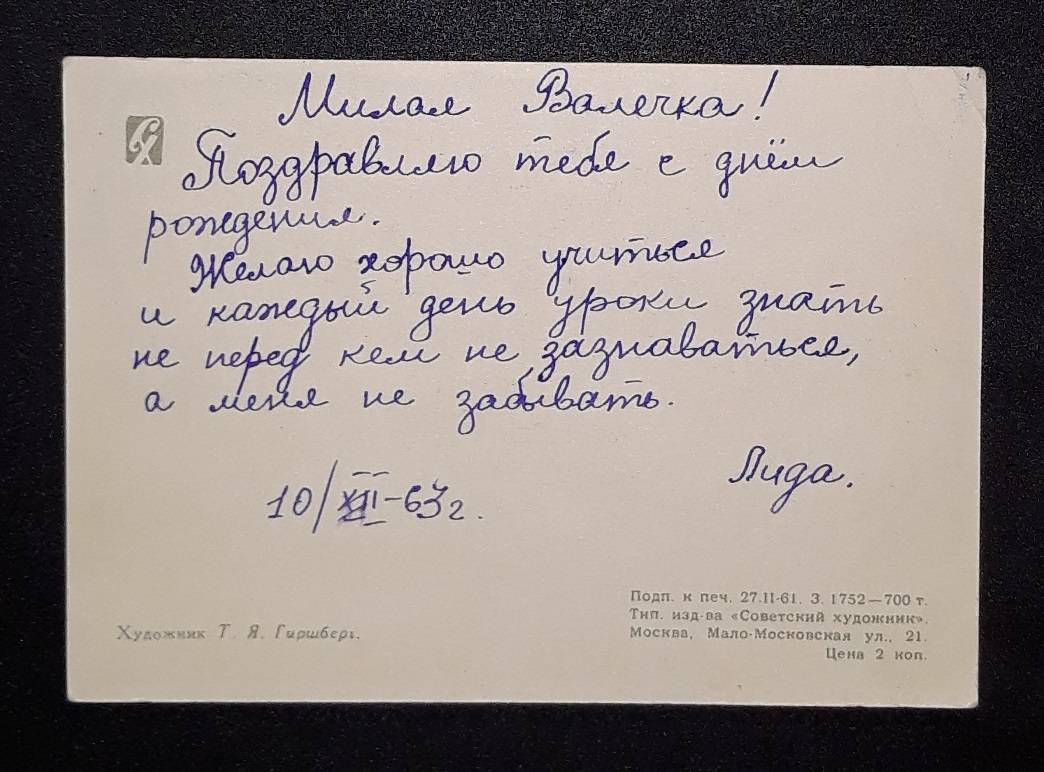 Милая Валечка!
Поздравляю тебя с днём
рождения.
Желаю хорошо учиться
и каждый день уроки знать
не перед кем не зазнаваться,
а меня не забывать.
Лида.
10/XII-63г.
Художник Т. Я. Гиршберг.
Подп. к печ. 27.II-61. З. 1752—700 т.
Тип. изд-ва «Советский художник».
Москва, Мало-Московская ул., 21.
Цена 2 коп.